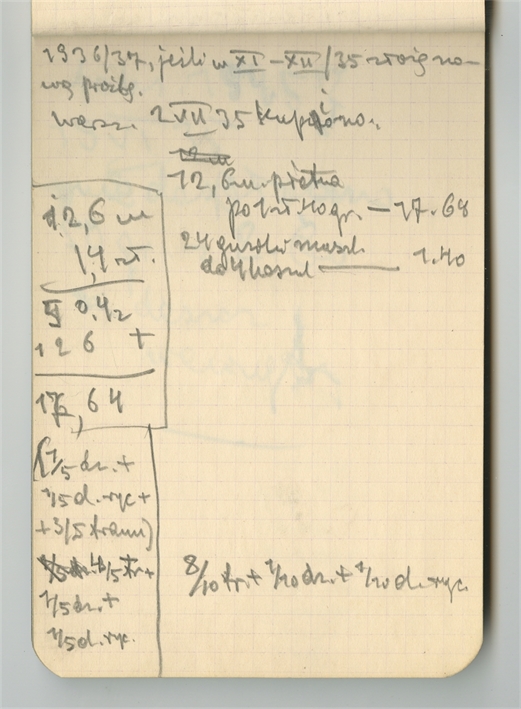 1936/37, jeśli w XI – XII/35 złożę no-
wą prośbę.
Warsz. 2 VII 35 kupiono:
12 m
12,6 m. płótna
po 1 zł. 40 gr. — 17.64
24 guziki
do 4 koszul — 1.40
12,6 m
1,4 zł.
5 0,42
12 6 +
17,64
(1/5 dz. +
1/5 d. ryc +
+ 3/5 tramw)
4/5 tr. +
1/5 dz. +
1/5 d. ryc.
8/10 tr. + 1/10 dz. + 1/10 d. ryc.